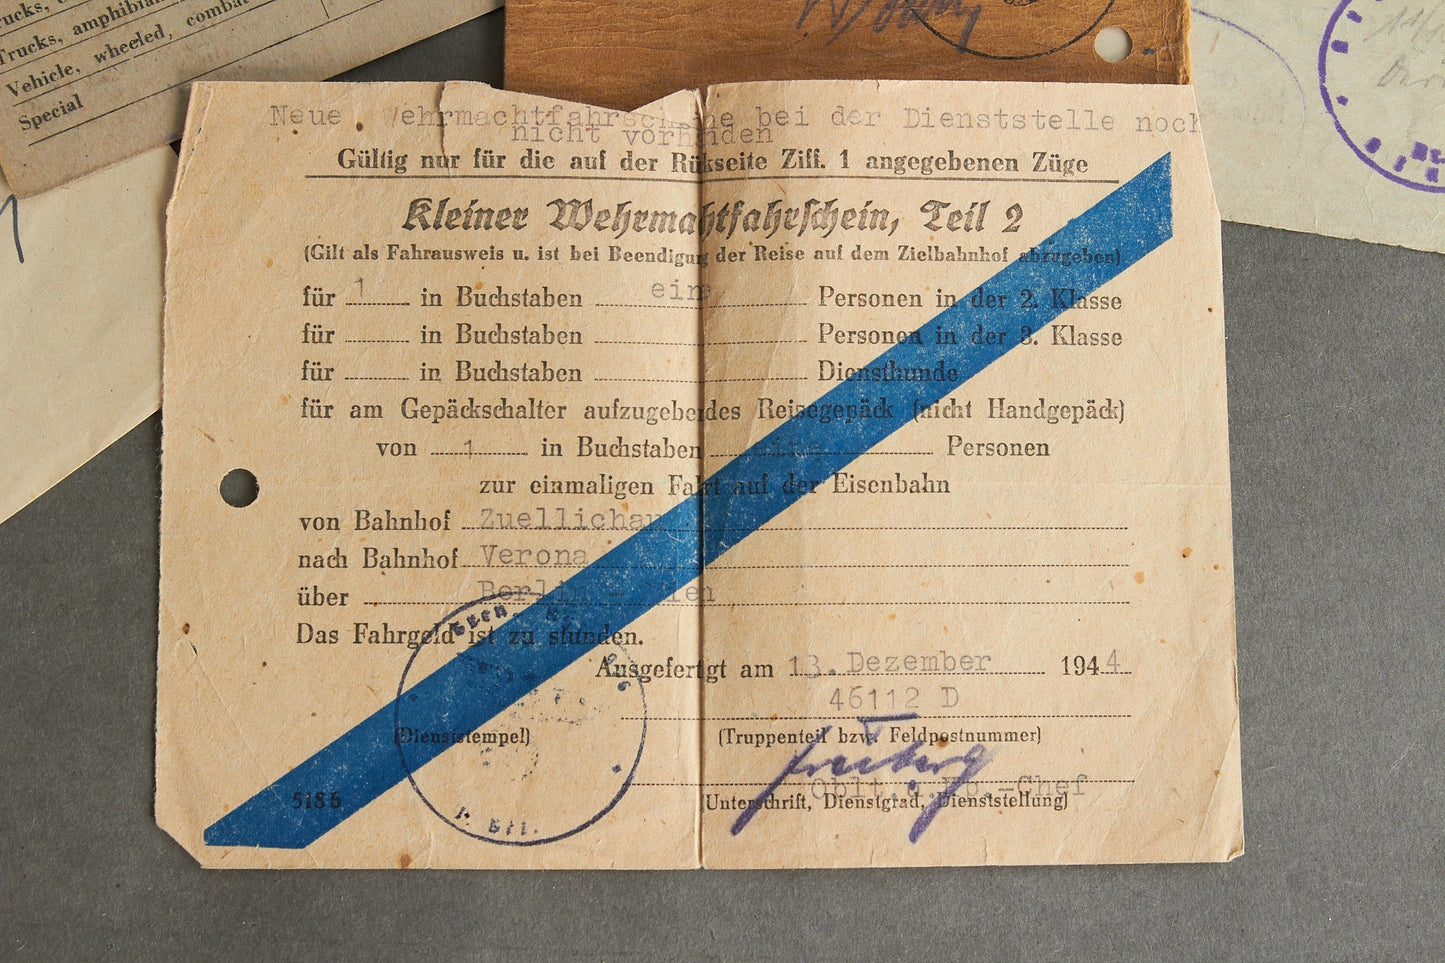 Trucks, amphibian
Vehicle, wheeled, combat
Special
Neue Wehrmachtfahrscheine bei der Dienststelle noch
nicht vorhanden
Gültig nur für die auf der Rükseite Ziff. 1 angegebenen Züge
Kleiner Wehrmachtfahrschein, Teil 2
(Gilt als Fahrausweis u. ist bei Beendigung der Reise auf dem Zielbahnhof abzugeben)
für 1 in Buchstaben ein Personen in der 2. Klasse
für in Buchstaben Personen in der 3. Klasse
für in Buchstaben Diensthunde
für am Gepäckschalter aufzugebendes Reisegepäck (nicht Handgepäck)
von 1 in Buchstaben eine Personen
zur einmaligen Fahrt auf der Eisenbahn
von Bahnhof Zuellichau
nach Bahnhof Verona
über Berlin - Wien
Das Fahrgeld ist zu stunden.
Ausgefertigt am 13. Dezember 1944
46112 D
(Dienststempel) (Truppenteil bzw. Feldpostnummer)
Oblt.u.Kp.-Chef
518 b (Unterschrift, Dienstgrad, Dienststellung)